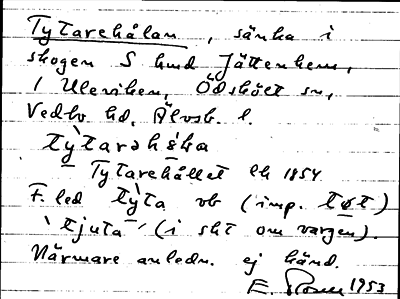 Tytarehålan, sänka i
skogen S hmd Jättenhem,
/ Uleviken, Ödskölt sn,
Vedbo hd, Älvsb. l.
tỳtarəhɷ̀ka
— Tytarehållet lk 1854
F. led tỳta vb (imp. tøt)
'tjuta' (i sht om vargen).
Närmare anledn. ej känd.
E. 1953